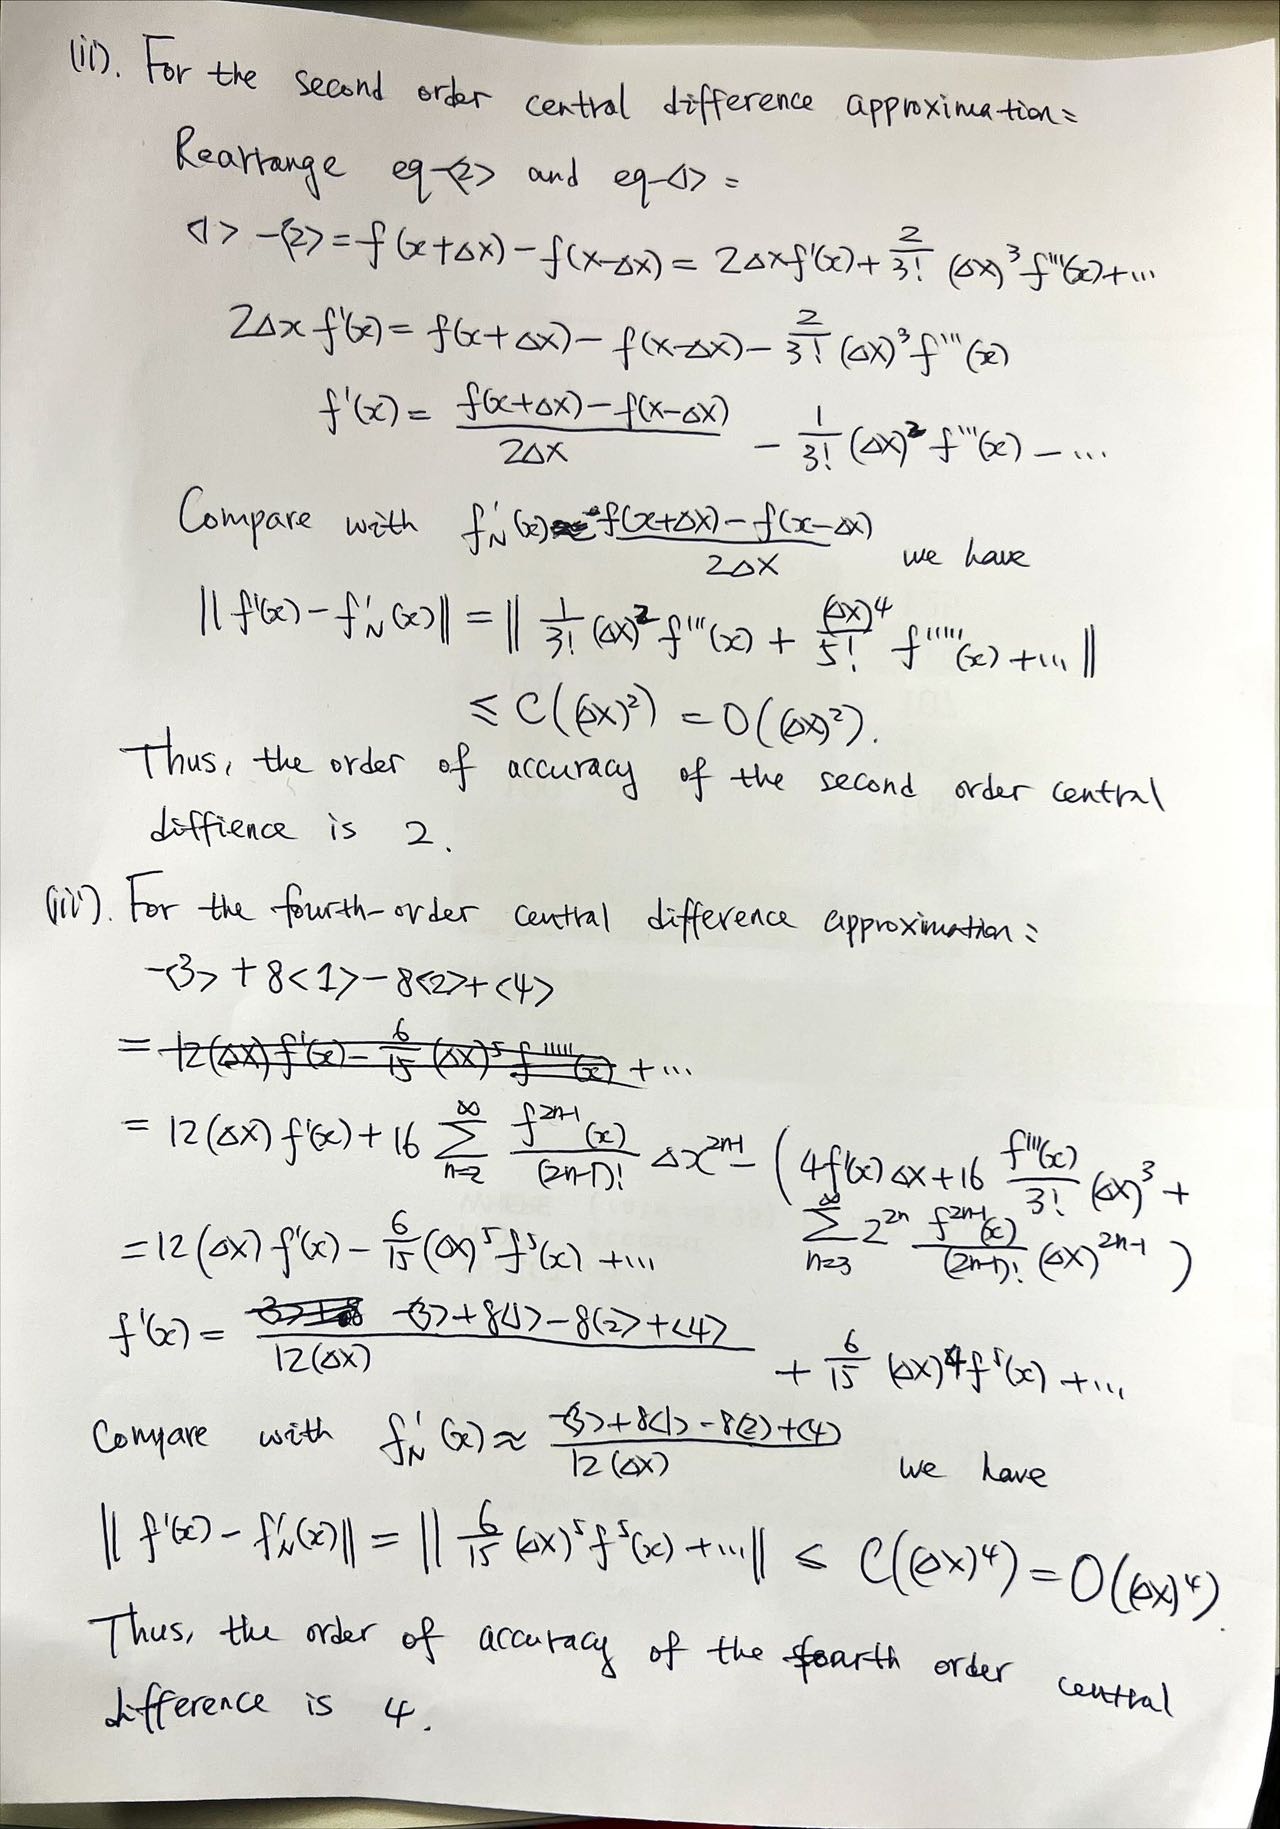 (ii). For the second order central difference approximation:
Rearrange eq-<2> and eq-<1> =
<1> -<2> = f(x+Δx) - f(x-Δx) = 2Δxf'(x) + 2/3! (Δx)³ f'''(x) + ...
2Δx f'(x) = f(x+Δx) - f(x-Δx) - 2/3! (Δx)³ f'''(x)
f'(x) = (f(x+Δx) - f(x-Δx))/(2Δx) - 1/3! (Δx)² f'''(x) - ...
Compare with f'_N(x) ≈ (f(x+Δx) - f(x-Δx))/(2Δx) we have
|| f'(x) - f'_N(x) || = || 1/3! (Δx)² f'''(x) + (Δx)⁴/5! f'''''(x) + ... ||
≤ C((Δx)²) = O((Δx)²).
Thus, the order of accuracy of the second order central
diffience is 2.
(iii). For the fourth-order central difference approximation:
-<3> + 8<1> - 8<2> + <4>
= 12(Δx) f'(x) - 6/15 (Δx)⁵ f'''''(x) + ...
= 12(Δx) f'(x) + 16 ∑_{n=2}^{∞} f^{2n-1}(x)/(2n-1)! Δx^{2n-1} - (4f'(x)Δx + 16 f'''(x)/3! (Δx)³ +
∑_{n=3}^{∞} 2^{2n} f^{2n-1}(x)/(2n-1)! (Δx)^{2n-1})
= 12(Δx) f'(x) - 6/15 (Δx)⁵ f⁵(x) + ...
f'(x) = (-<3> + 8<1> - 8<2> + <4>)/(12(Δx)) + 6/15 (Δx)⁴ f⁵(x) + ...
Compare with f'_N(x) ≈ (-<3> + 8<1> - 8<2> + <4>)/(12(Δx)) we have
|| f'(x) - f'_N(x) || = || 6/15 (Δx)⁵ f⁵(x) + ... || ≤ C((Δx)⁴) = O((Δx)⁴).
Thus, the order of accuracy of the fourth order central
difference is 4.